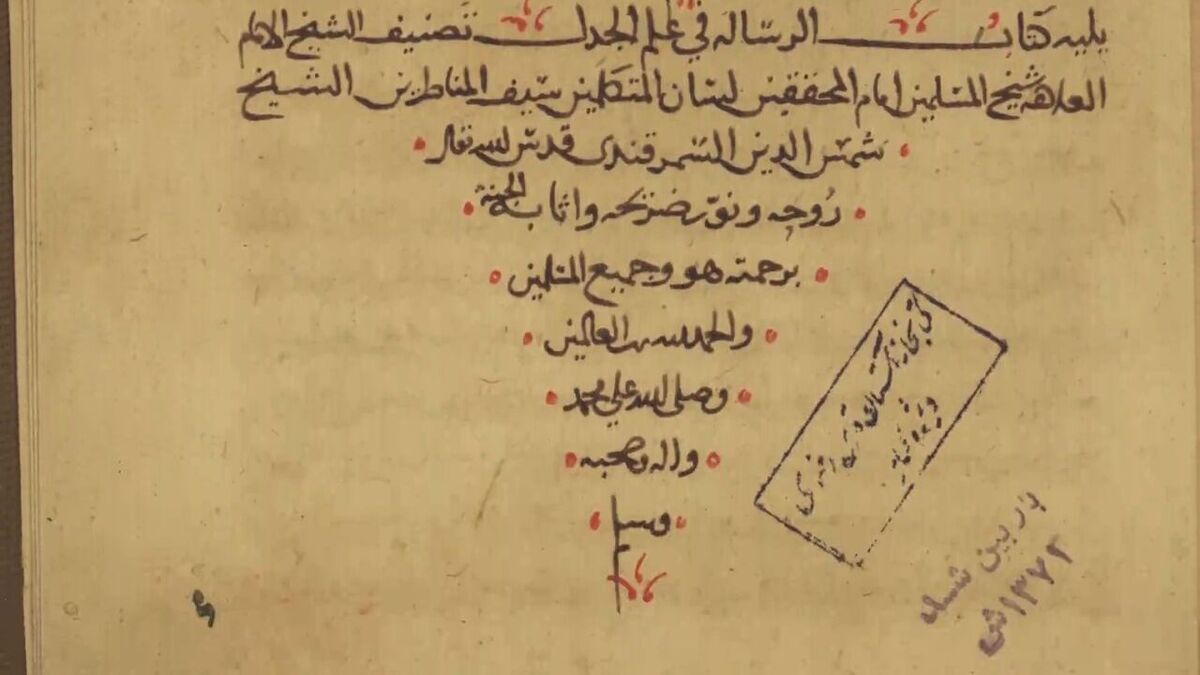 يليه كتاب الرساله في علم الجدل تصنيف الشيخ الامام
العلامة شيخ المسلمين امام المحققين لسان المتكلمين سيف المناظرين الشيخ
شمس الدين السمرقندى قدس الله تعالى
روحه ونور ضريحه واثابه الجنة
برحمته هو وجميع المسلمين
والحمد لله رب العالمين
وصلى الله على محمد
واله وصحبه
وسلم
كتابخانه آستان قدس
بازبين شد
۱۳۷۲ش